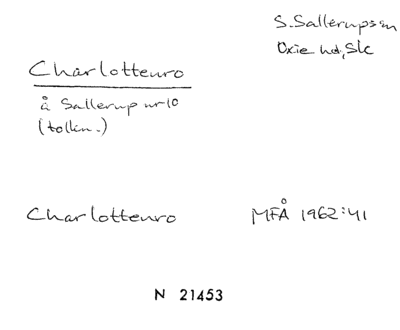 S. Sallerups sn
Oxie hd, Sk
Charlottenro
å Sallerup nr 10
(tollkn.)
Charlottenro MFÅ 1962:41
N 21453